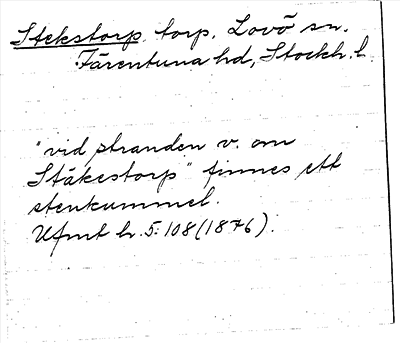 Stekstorp torp. Lovö sn.
Färentuna hd, Stockh. l.
"vid stranden v. om
Stäkestorp" finnes ett
stenkummel.
Ufmt h. 5:108 (1876).